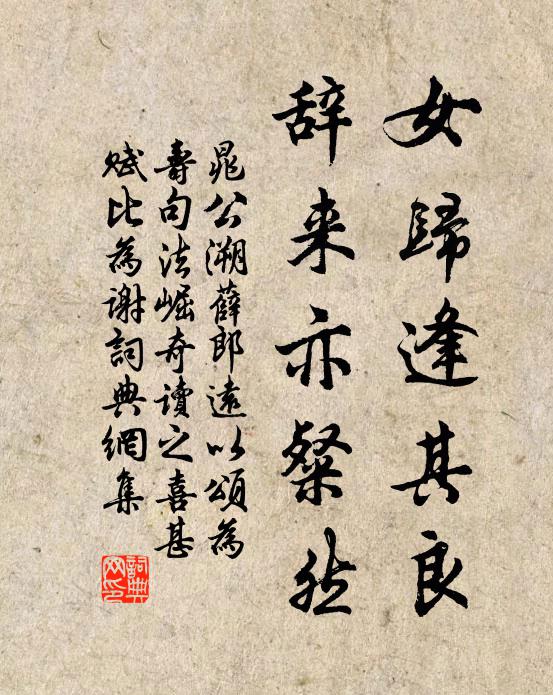 女歸逢其良
辞来亦粲然
晁公溯薛郎遠以頌為
壽句法崛奇讀之喜甚
賦比為谢詞典網集
詞典网印